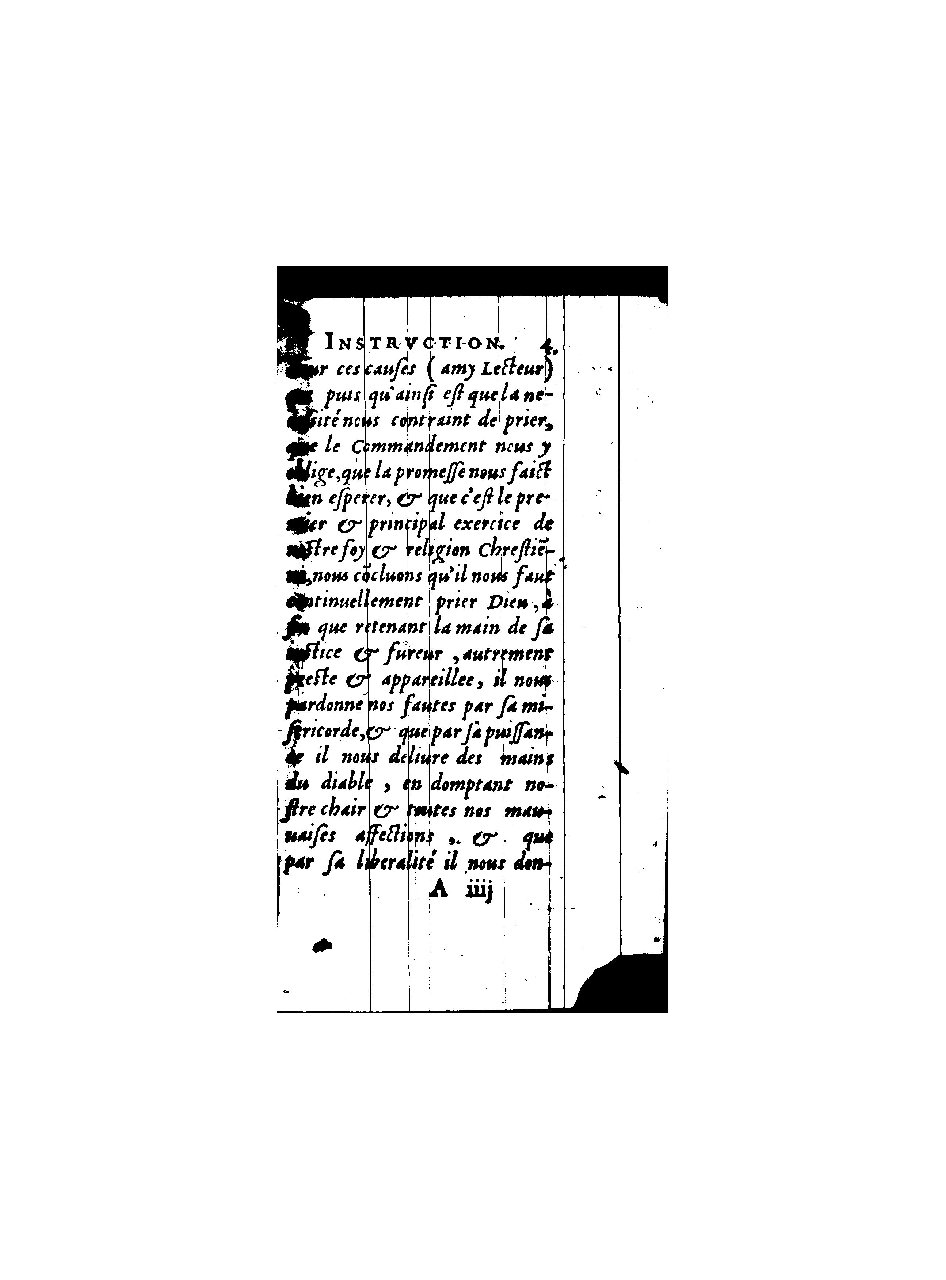 INSTRVCTION. 4.
ces cauſes (amy Lecteur)
puis qu'ainſi eſt que la ne-
ceſſité nous contraint de prier,
que le Commandement nous y
oblige, que la promeſſe nous faict
bien eſperer, & que c'eſt le pre-
mier & principal exercice de
noſtre foy & religion Chreſtiẽ-
nous cõcluons qu'il nous faut
continuellement prier Dieu, à
fin que retenant la main de ſa
iuſtice & fureur, autrement
preſte & appareillee, il nous
pardonne nos fautes par ſa mi-
ſericorde, & que par ſa puiſſan-
ce il nous deliure des mains
du diable, en domptant no-
ſtre chair & toutes nos mau-
uaiſes affections, & que
par ſa liberalité il nous don-
A iiij